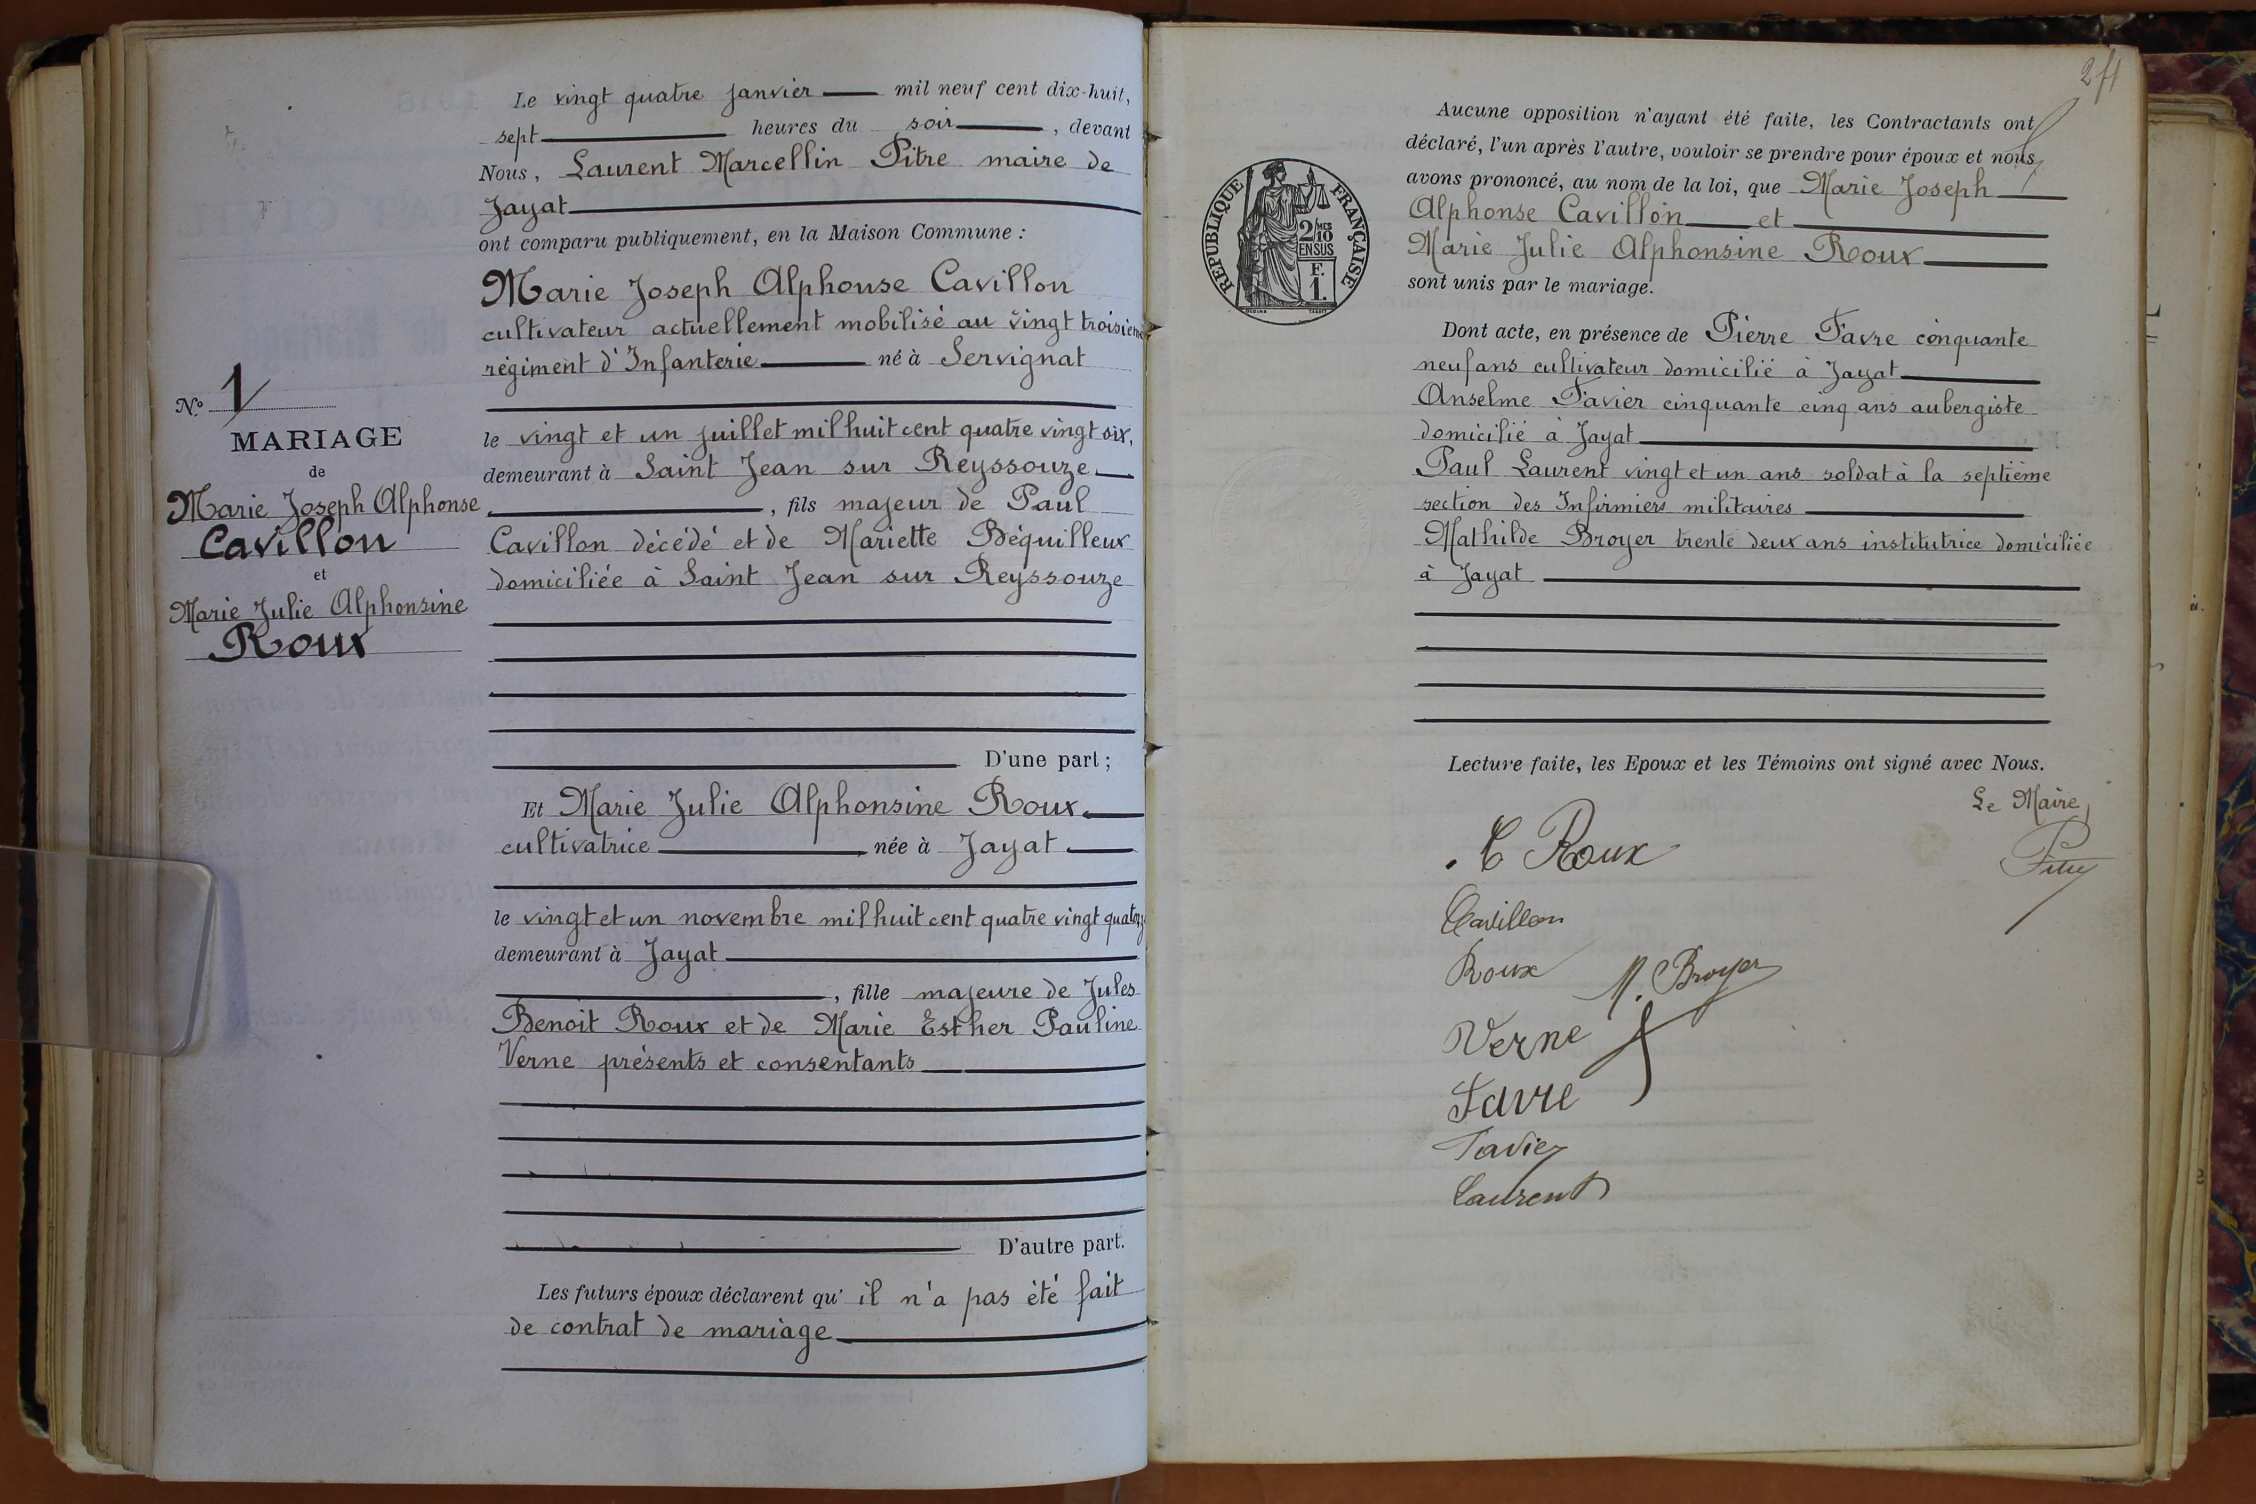 Le vingt quatre janvier mil neuf cent dix-huit,
sept heures du soir, devant
Nous, Laurent Marcellin Pitre maire de
Jayat
ont comparu publiquement, en la Maison Commune :
Marie Joseph Alphonse Cavillon
cultivateur actuellement mobilisé au vingt troisième
régiment d'Infanterie né à Servignat
le vingt et un juillet mil huit cent quatre vingt six,
demeurant à Saint Jean sur Reyssouze
, fils majeur de Paul
Cavillon décédé et de Mariette Béquilleux
domiciliée à Saint Jean sur Reyssouze
D'une part ;
Et Marie Julie Alphonsine Roux
cultivatrice, née à Jayat
le vingt et un novembre mil huit cent quatre vingt quatorze
demeurant à Jayat
, fille majeure de Jules
Benoit Roux et de Marie Esther Pauline
Verne présents et consentants
D'autre part.
Les futurs époux déclarent qu' il n'a pas été fait
de contrat de mariage
N.º 1
MARIAGE
de
Marie Joseph Alphonse
Cavillon
et
Marie Julie Alphonsine
Roux
Aucune opposition n'ayant été faite, les Contractants ont
déclaré, l'un après l'autre, vouloir se prendre pour époux et nous
avons prononcé, au nom de la loi, que Marie Joseph
Alphonse Cavillon et
Marie Julie Alphonsine Roux
sont unis par le mariage.
REPUBLIQUE FRANÇAISE
2/10 MES
EN SUS
F.
1.
Dont acte, en présence de Pierre Favre cinquante
neuf ans cultivateur domicilié à Jayat
Anselme Favier cinquante cinq ans aubergiste
domicilié à Jayat
Paul Laurent vingt et un ans soldat à la septième
section des Infirmiers militaires
Mathilde Broyer trente deux ans institutrice domiciliée
à Jayat
Lecture faite, les Epoux et les Témoins ont signé avec Nous.
Le Maire,
Roux
Pitre
Cavillon
Roux M. Broyer
Verne
Favre
Favier
Laurent